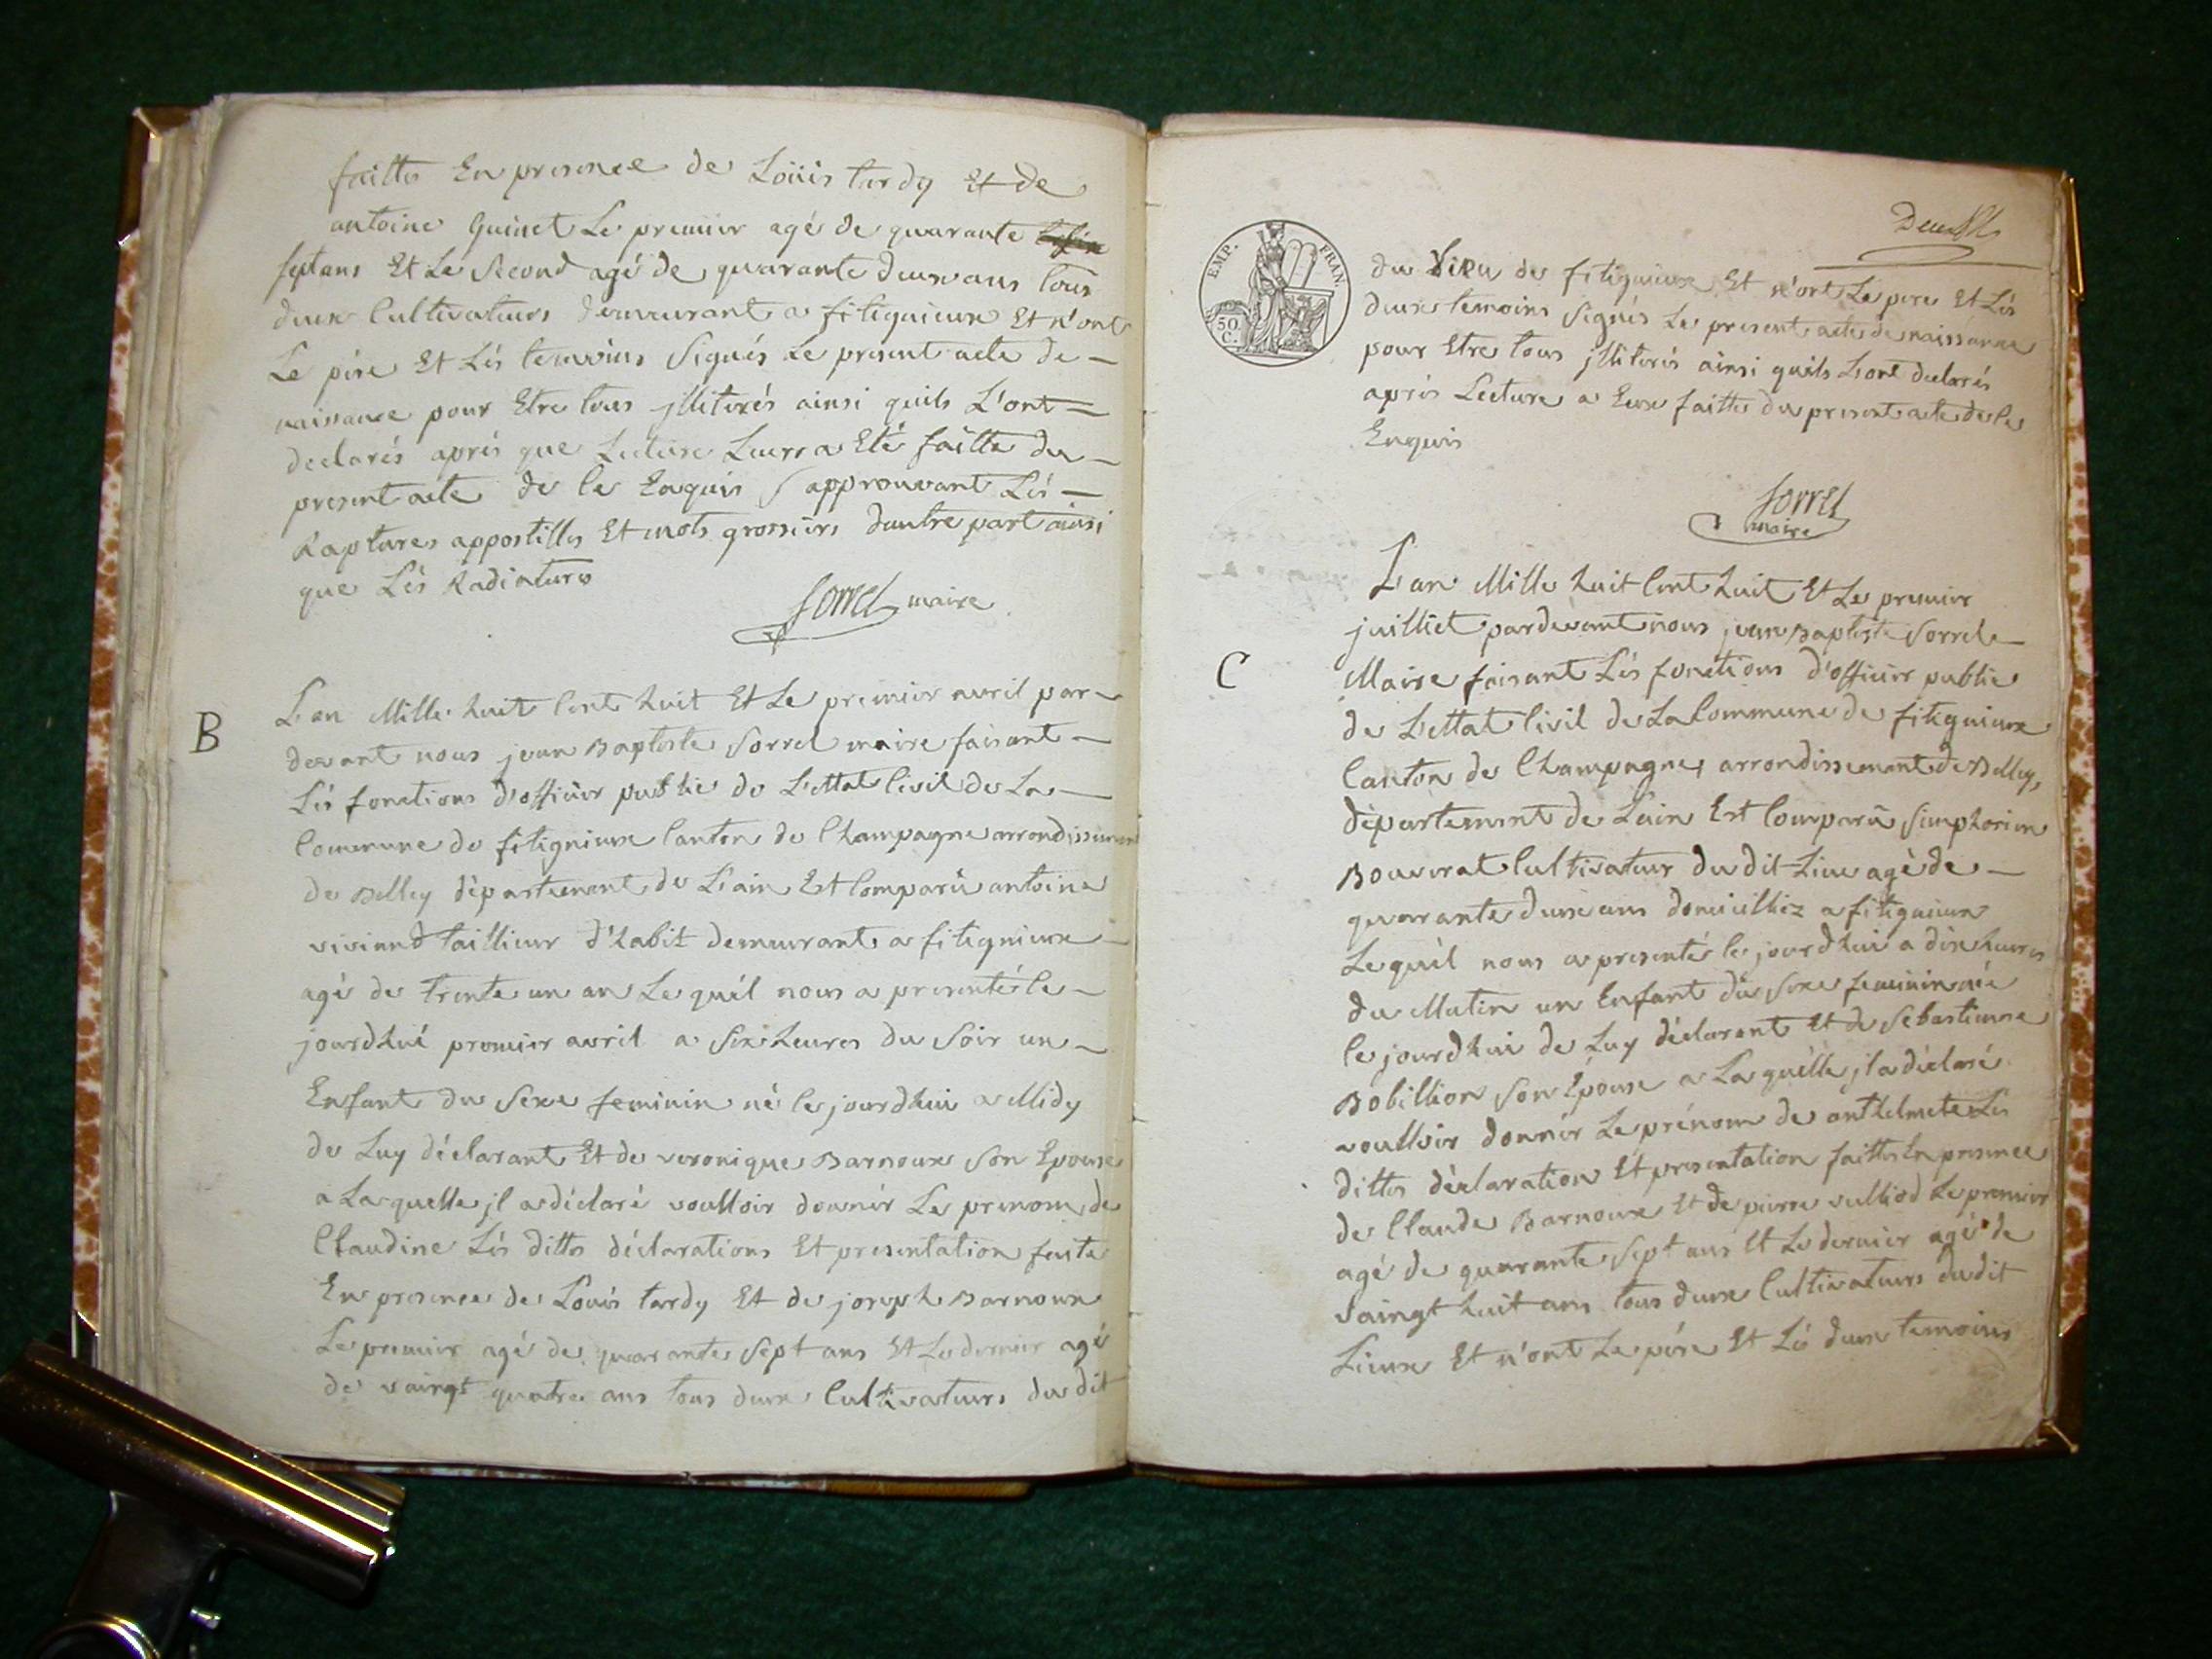 faittes En presence de Loüis tardy Et de
antoine Guinet Le premier agé de quarante
sept ans Et Le Second agé de quarante deux ans tous
deux Cultivateurs demeurant a fitignieux Et n'ont
Le pére Et Lés temoins Signés Le present acte de —
naissance pour Etre tous jllitérés ainsi quils L'ont —
declarés aprés que Lecture Leurs a Eté faitte du —
present acte de ce Enquis approuvant Lés —
Raptures appostilles Et mots grossiers dautre part ainsi
que Lés Radiatures
Sorrel maire
B
L'an Mille huit Cent huit Et Le premier avril par —
devant nous jean Baptiste Sorrel maire faisant —
Lés fonctions d'officier public de L'ettat Civil de La —
Commune de fitignieux Canton de Champagne arrondissement
de Belley dèpartement de L'ain Est Comparû antoine
viviand taillieur d'habit demeurant a fitignieux —
agé de trente un an Le quél nous a presenté Ce —
jourdhui premier avril a Six heures du Soir un —
Enfant du Sexe feminin né Ce jourdhui a Midy
de Luy déclarant Et de veronique Barnoux Son Epouse
a La quelle jl a déclaré voulloir donnér Le prenom de
Claudine Lés dittes déclarations Et presentation faite
En presence de Louis tardy Et de joseph Barnoux
Le premier agé de quarante Sept ans Et Le dernier agé
de vaingt quatre ans tous deux Cultivateurs du dit
EMP. FRAN.
50 C.
du Lieu de fitignieux Et n'ont Le pere Et Lés
deux temoins Signés Le present acte de naissance
pour Etre tous jllitérés ainsi quils L'ont declarés
aprés Lecture a Eux faitte du present acte de ce
Enquis
Sorrel
maire
C
L'an Mille huit Cent huit Et Le premier
juilliet pardevant nous jean Baptiste Sorrel —
Maire faisant Lés fonctions d'officier public
de L'ettat Civil de La Commune de fitignieux
Canton de Champagne, arrondissement de Belley,
dèpartement de L'ain Est Comparû Simphorien
Bouverat Cultivateur du dit Lieu agé de —
quarante deux ans domicilliez a fitignieux
Le quél nous a presenté Ce jourdhui a dix heures
du Matin un Enfant du Sexe feminin née
Ce jourdhui de Luy déclarant Et de Sebastienne
Bobillion Son Epouse a La quélle jl a déclaré
voulloir donnér Le prénom de anthelmete Lés
dittes déclaration Et presentation faittes En presence
de Claude Barnoux Et de pierre vulliod Le premier
agé de quarante Sept ans Et Le dernier agé de
vaingt huit ans tous deux Cultivateurs du dit
Lieux Et n'ont Le pére Et Lés deux temoins